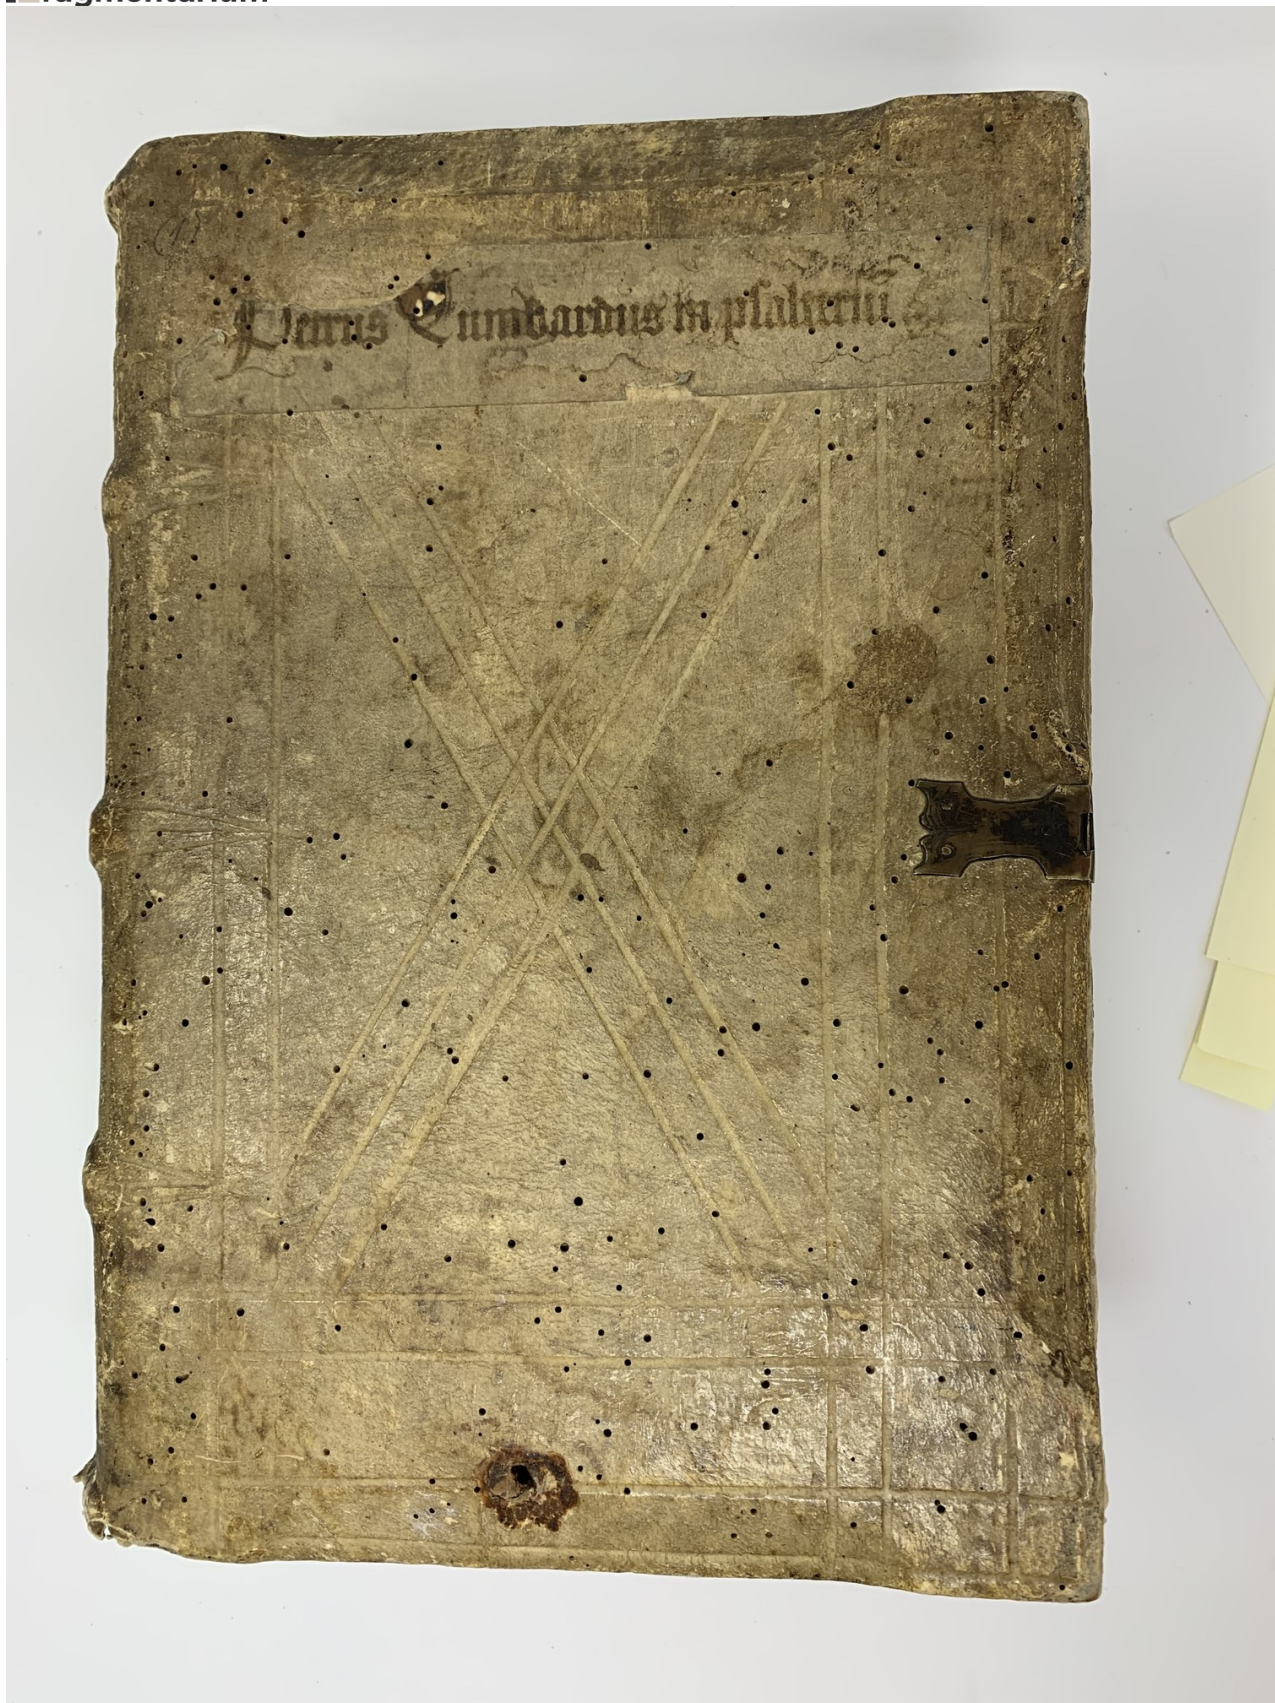 Petrus Lumbardus in psalteriū